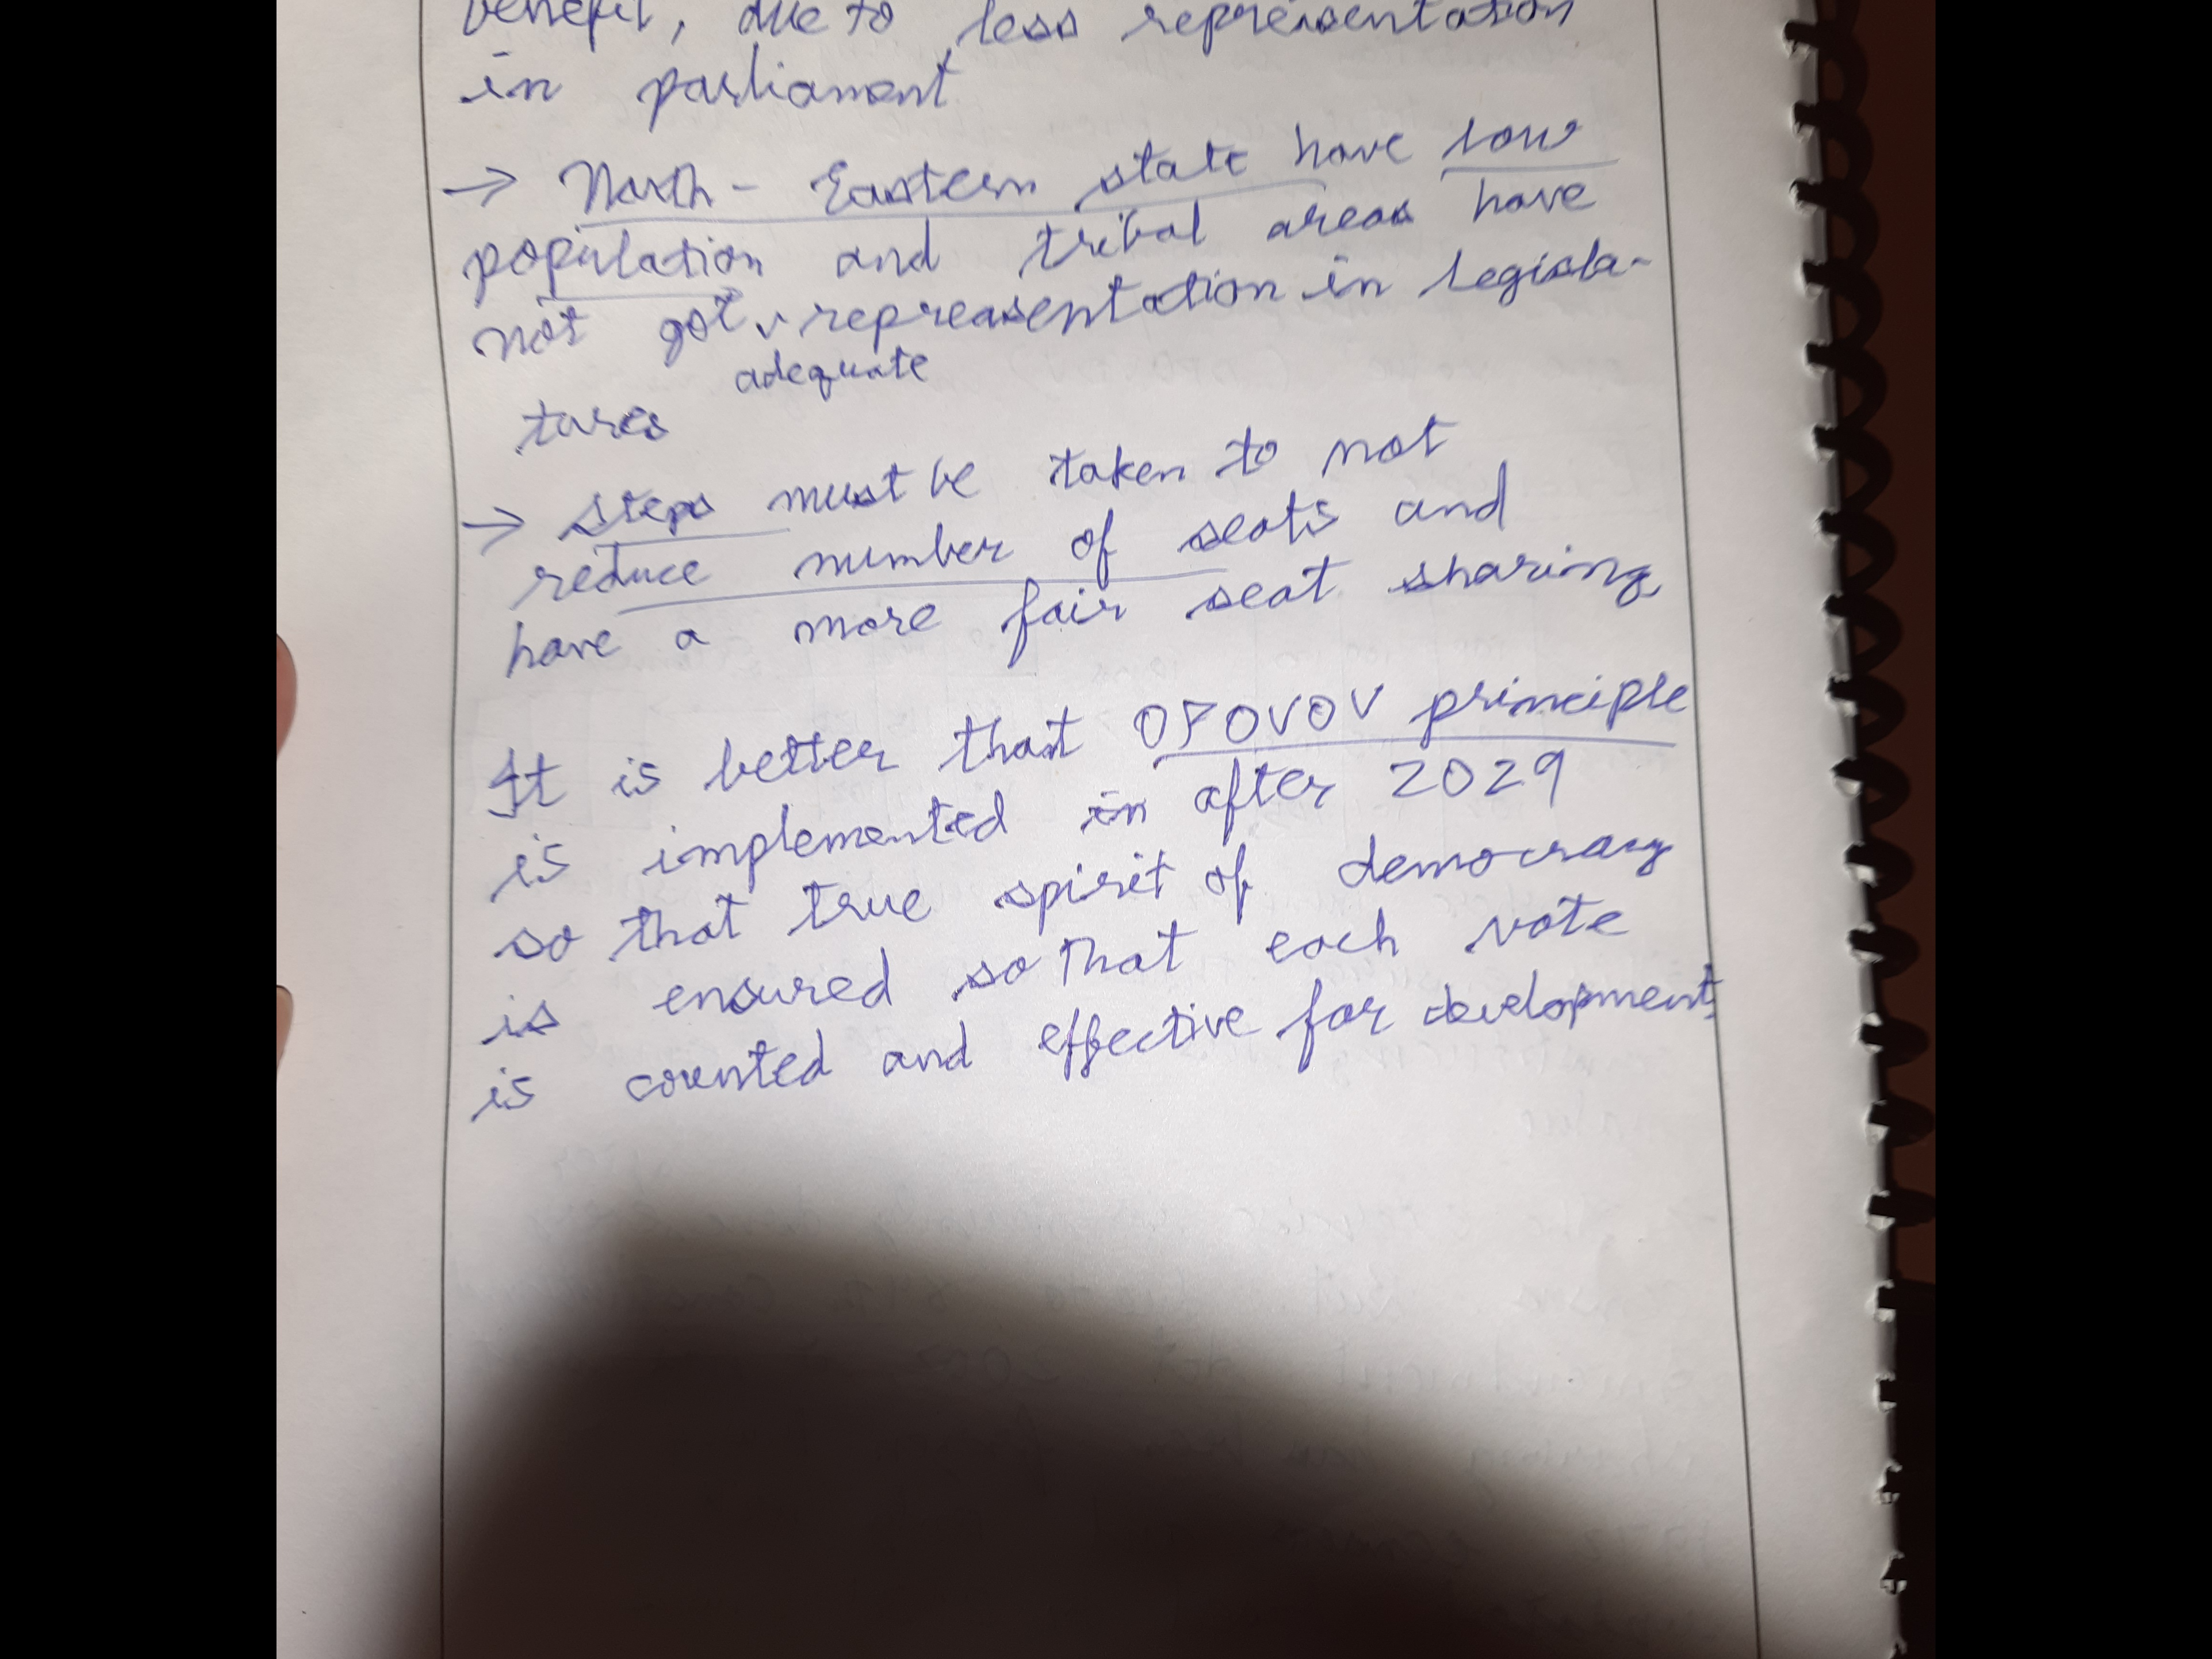 benefit, due to less representation
in parliament
→ North - Eastern state have low
population and tribal areas have
not got ✓ representation in legisla-
adequate
tures
→ steps must be taken to not
reduce number of seats and
have a more fair seat sharing
It is better that OPOVOV principle
is implemented in after 2029
so that true spirit of democracy
is ensured so that each vote
is counted and effective for development.